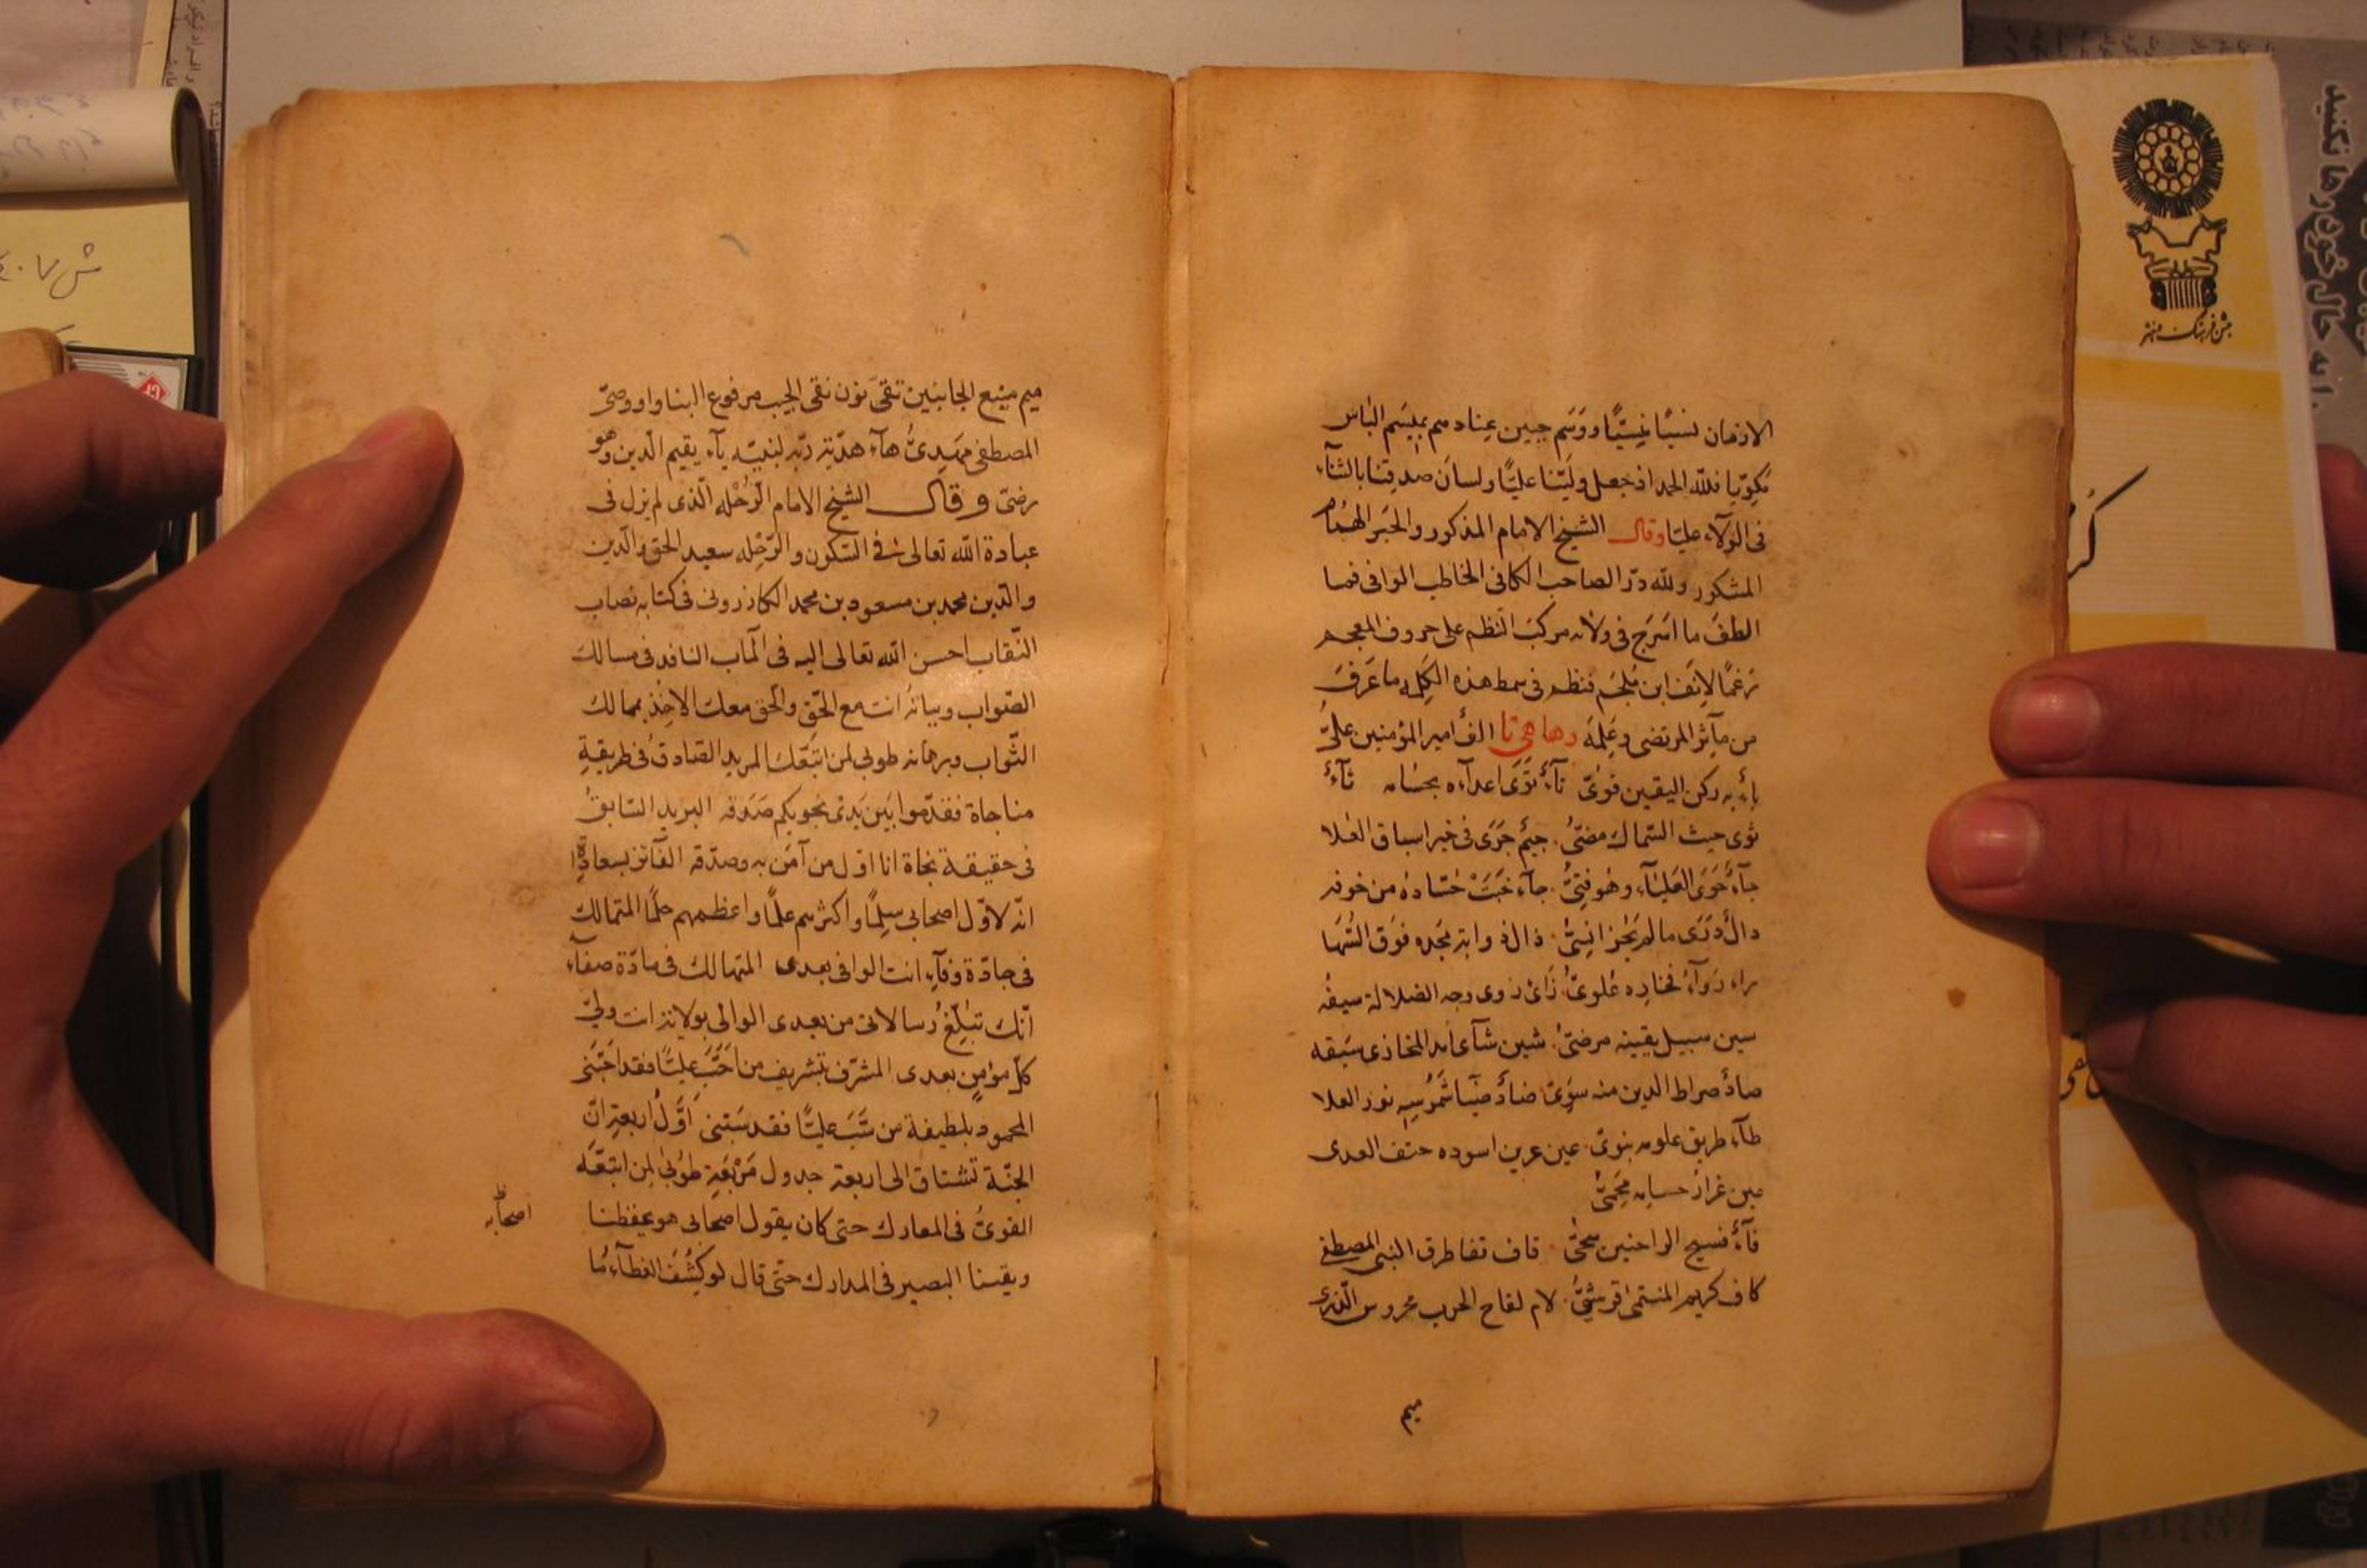 الازمان نسيًا منسيًا ووسم جبين عنادهم بميسم الباس
مكويا فلله الحمد اذ جعل وليّنا عليًّا ولسان صدقنا بالثنآء
فى الولآء عليّا وقال الشيخ الامام المذكور والحبر الهمام
المشكور ولله درّ الصاحب الكافى الخاطب الوافى فما
الطف ما اسرج فى ولائه مركب النظم على حروف المعجم
رغمًا لانف ابن ملجم فنظم فى سمط هذه الكلم ما عرف
من مآثر المرتضى وعلمه وها هى تا الف أمير المؤمنين علىّ
باء به ركن اليقين قوىّ تآء توى اعداءه بحسامه ثآء
ثوى حيث السّماك مضىّ جيم جرى فى خير اسباق العلا
حآء حوى العلياء وهو فتىّ خآء خبت حسّاده من خوفه
دال درى ما لم يحز انسىّ ذال ذوابة مجده فوق السّها
راء روآء فخاره علوىّ زاى زوى وجه الضلالة سيفه
سين سبيل يقينه مرضىّ شين شآى امد المخازى سبقه
صاد صراط الدين منه سوىّ ضاد ضيآ شموسه نور العلا
طآء طريق علومه نبوىّ عين عرين اسوده حتف العدى
غين غرار حسامه محمىّ
فآء فسيح الراحتين سخىّ قاف تفا طرق النبى المصطفى
كاف كريم المنتمى قرشىّ لام لقاح الحرب محروس الذرى
ميم
ميم منيع الجانبين تقىّ نون نقى الجيب مرفوع البنا واو وصىّ
المصطفى مهدىّ هآء هديّة ربّه لنبيّه يآء يقيم الدين وهو
رضىّ وقال الشيخ الامام الرّحلة الّذى لم يزل فى
عبادة الله تعالى فى السّكون والرّحله سعيد الحق والدين
والدين محمد بن مسعود بن محمد الكازرونى فى كتابه نصاب
النّقاب احسن الله تعالى اليه فى المآب النافد فى مسالك
الصّواب وبيانه انت مع الحقّ والحق معك الاخذ بممالك
الثّواب وبرهانه طوبى لمن اتبعك المريد الصّادق فى طريقة
مناجاة فقدّموا بين يدى نجويكم صدقه البريد السّابق
فى حقيقة نجاة انا اوّل من آمن به وصدّقه الفآئز بسعادة
انّه لاوّل اصحابى سلمًا واكثرهم علمًا واعظمهم حلمًا المتمالك
فى جادّة وفآء انت الوافى بعدى المتهالك فى مادّة صفآء
انّك تبلّغ رسالاتى من بعدى الوالى بولاية انت ولىّ
كلّ مؤمن بعدى المشرّف بتشريف من احبّ عليًّا فقد احبّنى
المحمود بلطيفة من سبّ عليًّا فقد سبّنى اوّل اربعة انّ
الجنّة تشتاق الى اربعة جدول مرتبة طوبى لمن اتبعه
القوىّ فى المعارك حتى كان يقول اصحابى هو يحفظنا
اصحابه
ويقينا البصير فى المدارك حتّى قال لو كشف الغطآء ما
جشن فرهنگ و هنر